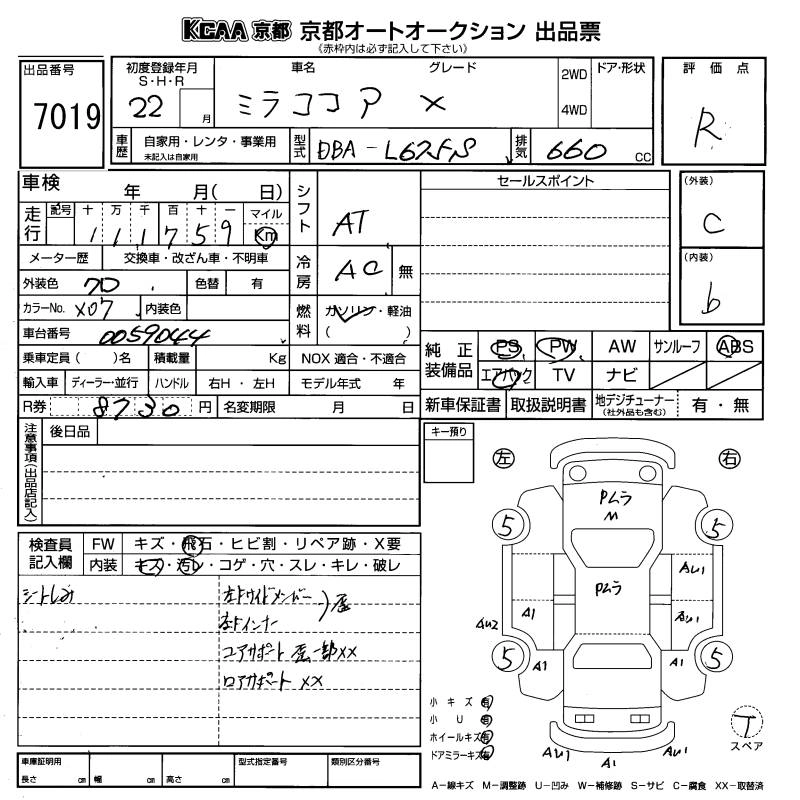 KCAA 京都 京都オートオークション 出品票
(赤枠内は必ず記入して下さい)
出品番号
7019
初度登録年月
S・H・R
22 月
車名
グレード
ミラココア X
2WD
4WD
ドア・形状
評価点
R
車歴
自家用・レンタ・事業用
未記入は自家用
型式
DBA-L625S
排気
660 CC
車検 年 月( 日)
走行
記号 十 万 千 百 十 一
111759
マイル
Km
メーター歴 交換車・改ざん車・不明車
外装色
色替 有
カラーNo. X07
内装色
車台番号
0059044
乗車定員( )名 積載量 Kg
NOX 適合・不適合
輸入車 ディーラー・並行 ハンドル 右H・左H モデル年式 年
R券 8730 円 名変期限 月 日
シフト
AT
冷房
AC 無
燃料
ガソリン・軽油
( )
セールスポイント
(外装)
C
(内装)
b
純正装備品
PS PW AW サンルーフ ABS
エアバック TV ナビ
新車保証書 取扱説明書 地デジチューナー
(社外品も含む)
有・無
注意事項(出品店記入)
後日品
キー預り
検査員記入欄
FW キズ・飛石・ヒビ割・リペア跡・X要
内装 キズ・汚レ・コゲ・穴・スレ・キレ・破レ
シートしみ
左トインナー
コアサポート 一部XX
ロアサポート XX
左
右
Pムラ
M
5
5
AU1
Pムラ
A1
AU1
AU2
5
A1
A1
5
小キズ 有
小U 有
ホイールキズ 有
ドアミラーキズ 有
AU1
A1
AU1
T
スペア
車庫証明用
長さ cm 幅 cm 高さ cm
型式指定番号
類別区分番号
A-線キズ M-調整跡 U-凹み W-補修跡 S-サビ C-腐食 XX-取替済